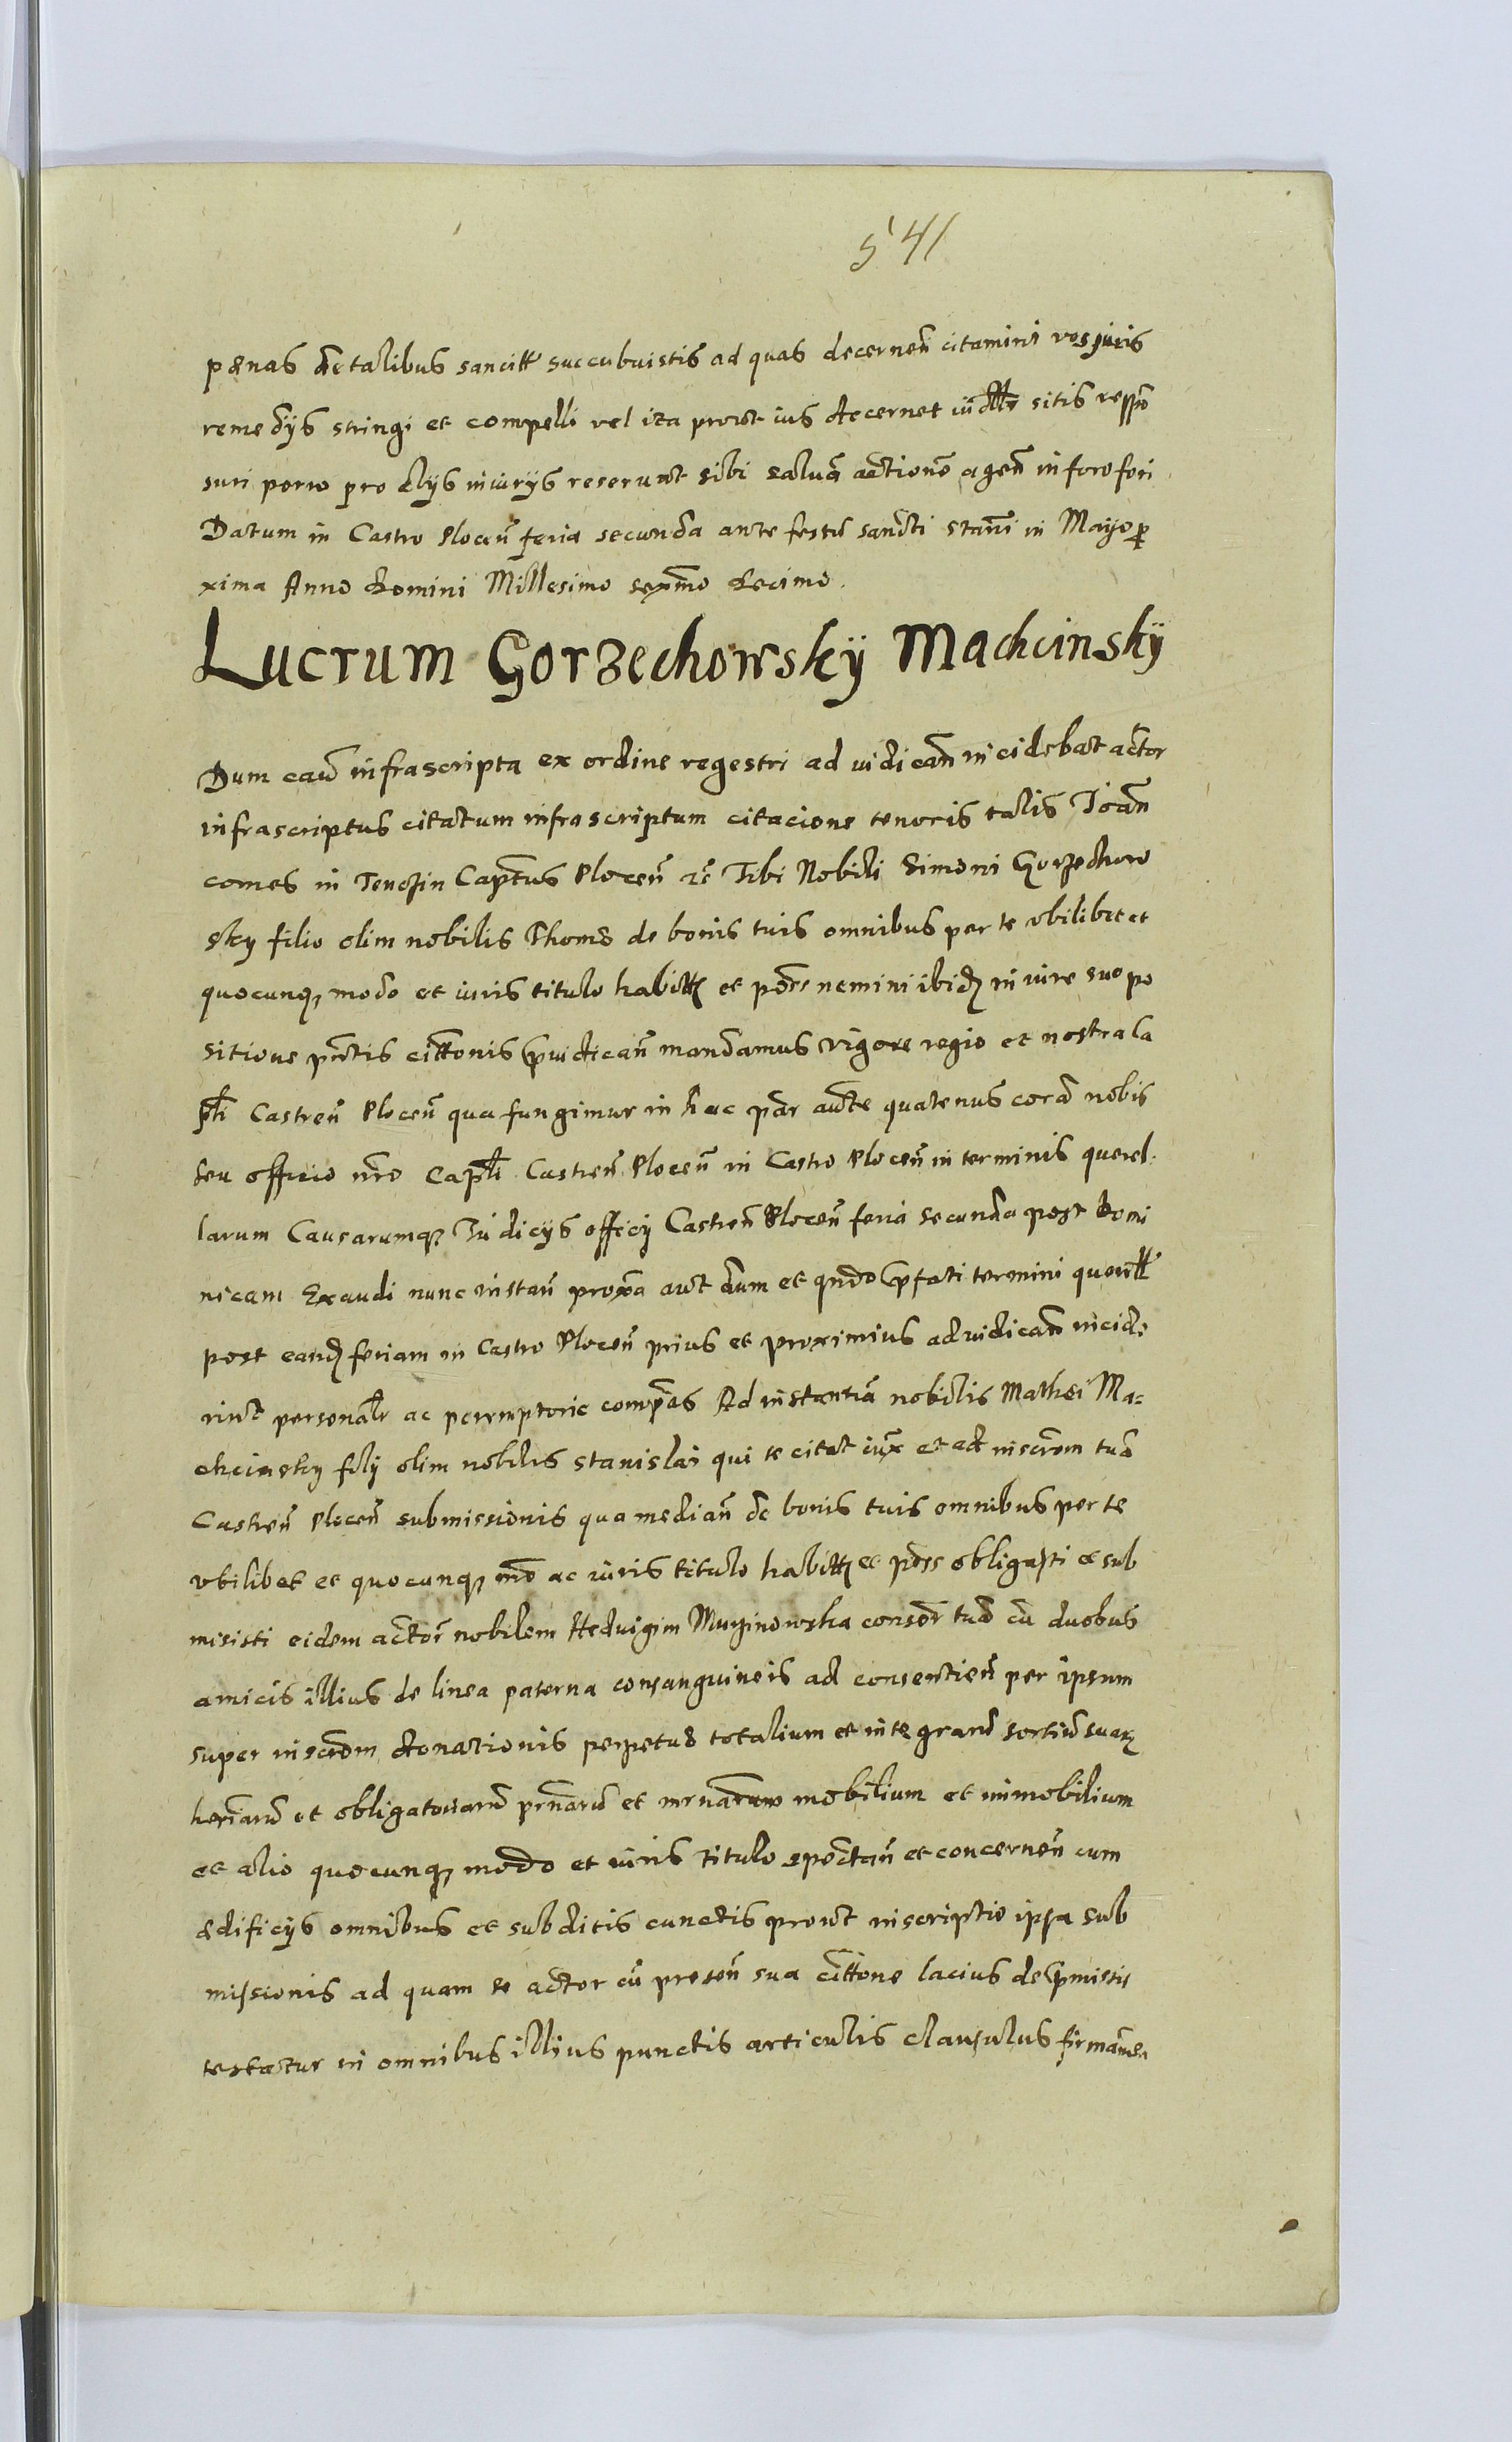 541
pœnas de talibus sancitt succubuistis ad quas decernen̄ citamini vos juris
remedijs stringi et compelli vel ita prout ius decernet sitis respo
suri porro pro alijs iniurijs reserunt sibi saluā actionē agen̄ in foro fori
Datum in Castro Plocen̄ feria secunda ante festū sancti Stani in Mayo p
xima Anno Domini Millesimo sexmo decimo.
Lucrum Gorzechowskÿ Machcinskÿ
Dum caū infrascripta ex ordine regestri ad iudican̄ incidebat actor
infrascriptus citatum infrascriptum citacione tenoris talis Joan̄
comes in Tenczin Captus Plocen̄ rc̄ Tibi Nobili Simoni Gorzechow
sky filio olim nobilis Thomæ de bonis tuis omnibus per te vbilibet et
quocunq modo et iuris titulo habitt et poss nemini ibid in iure suo po
sitione pntis cittonis p iudican̄ mandamus vigore regio et nostra la
pti Castren̄ Plocen̄ qua fungimur in hac par aucte quatenus corā nobis
seu officio nro Capti Castren̄ Plocen̄ in Castro Plocen̄ in terminis querel-
larum Causarumq Judicijs officij Castren̄ Plocen̄ feria secunda post Domi
nicam Exaudi nunc instan̄ proxa aut dum et qndo pfati termini querell
post eand feriam in Castro Plocen̄ prius et proximius ad iudican̄ incide
rint personalr ac peremptorie compas Ad instantiā nobilis Mathei Ma=
chcinsky filij olim nobilis Stanislai qui te citat iux et ad inscrom tuā
Castren̄ Plocen̄ submissionis qua median̄ de bonis tuis omnibus per te
vbilibet et quocunq mo ac iuris titulo habitt et poss obligasti et sub
misisti eidem actori nobilem Hedvigim Muzinowska consor tuā cū duobus
amicis illius de linea paterna consanguineis ad consentien̄ per ipsum
super inscrom donationis perpetuæ totalium et integrarū sortiū suar
heriarū et obligatoriarū prnarū et mrnarum mobilium et immobilium
et alio quocunq modo et iuris titulo spectan̄ et concernen̄ cum
ædificijs omnibus et subditis cunctis prout inscriptio ipsa sub
missionis ad quam se actor cū presen̄ sua cittone lacius de pmissis
testatur in omnibus illius punctis articulis clausulus firmamen